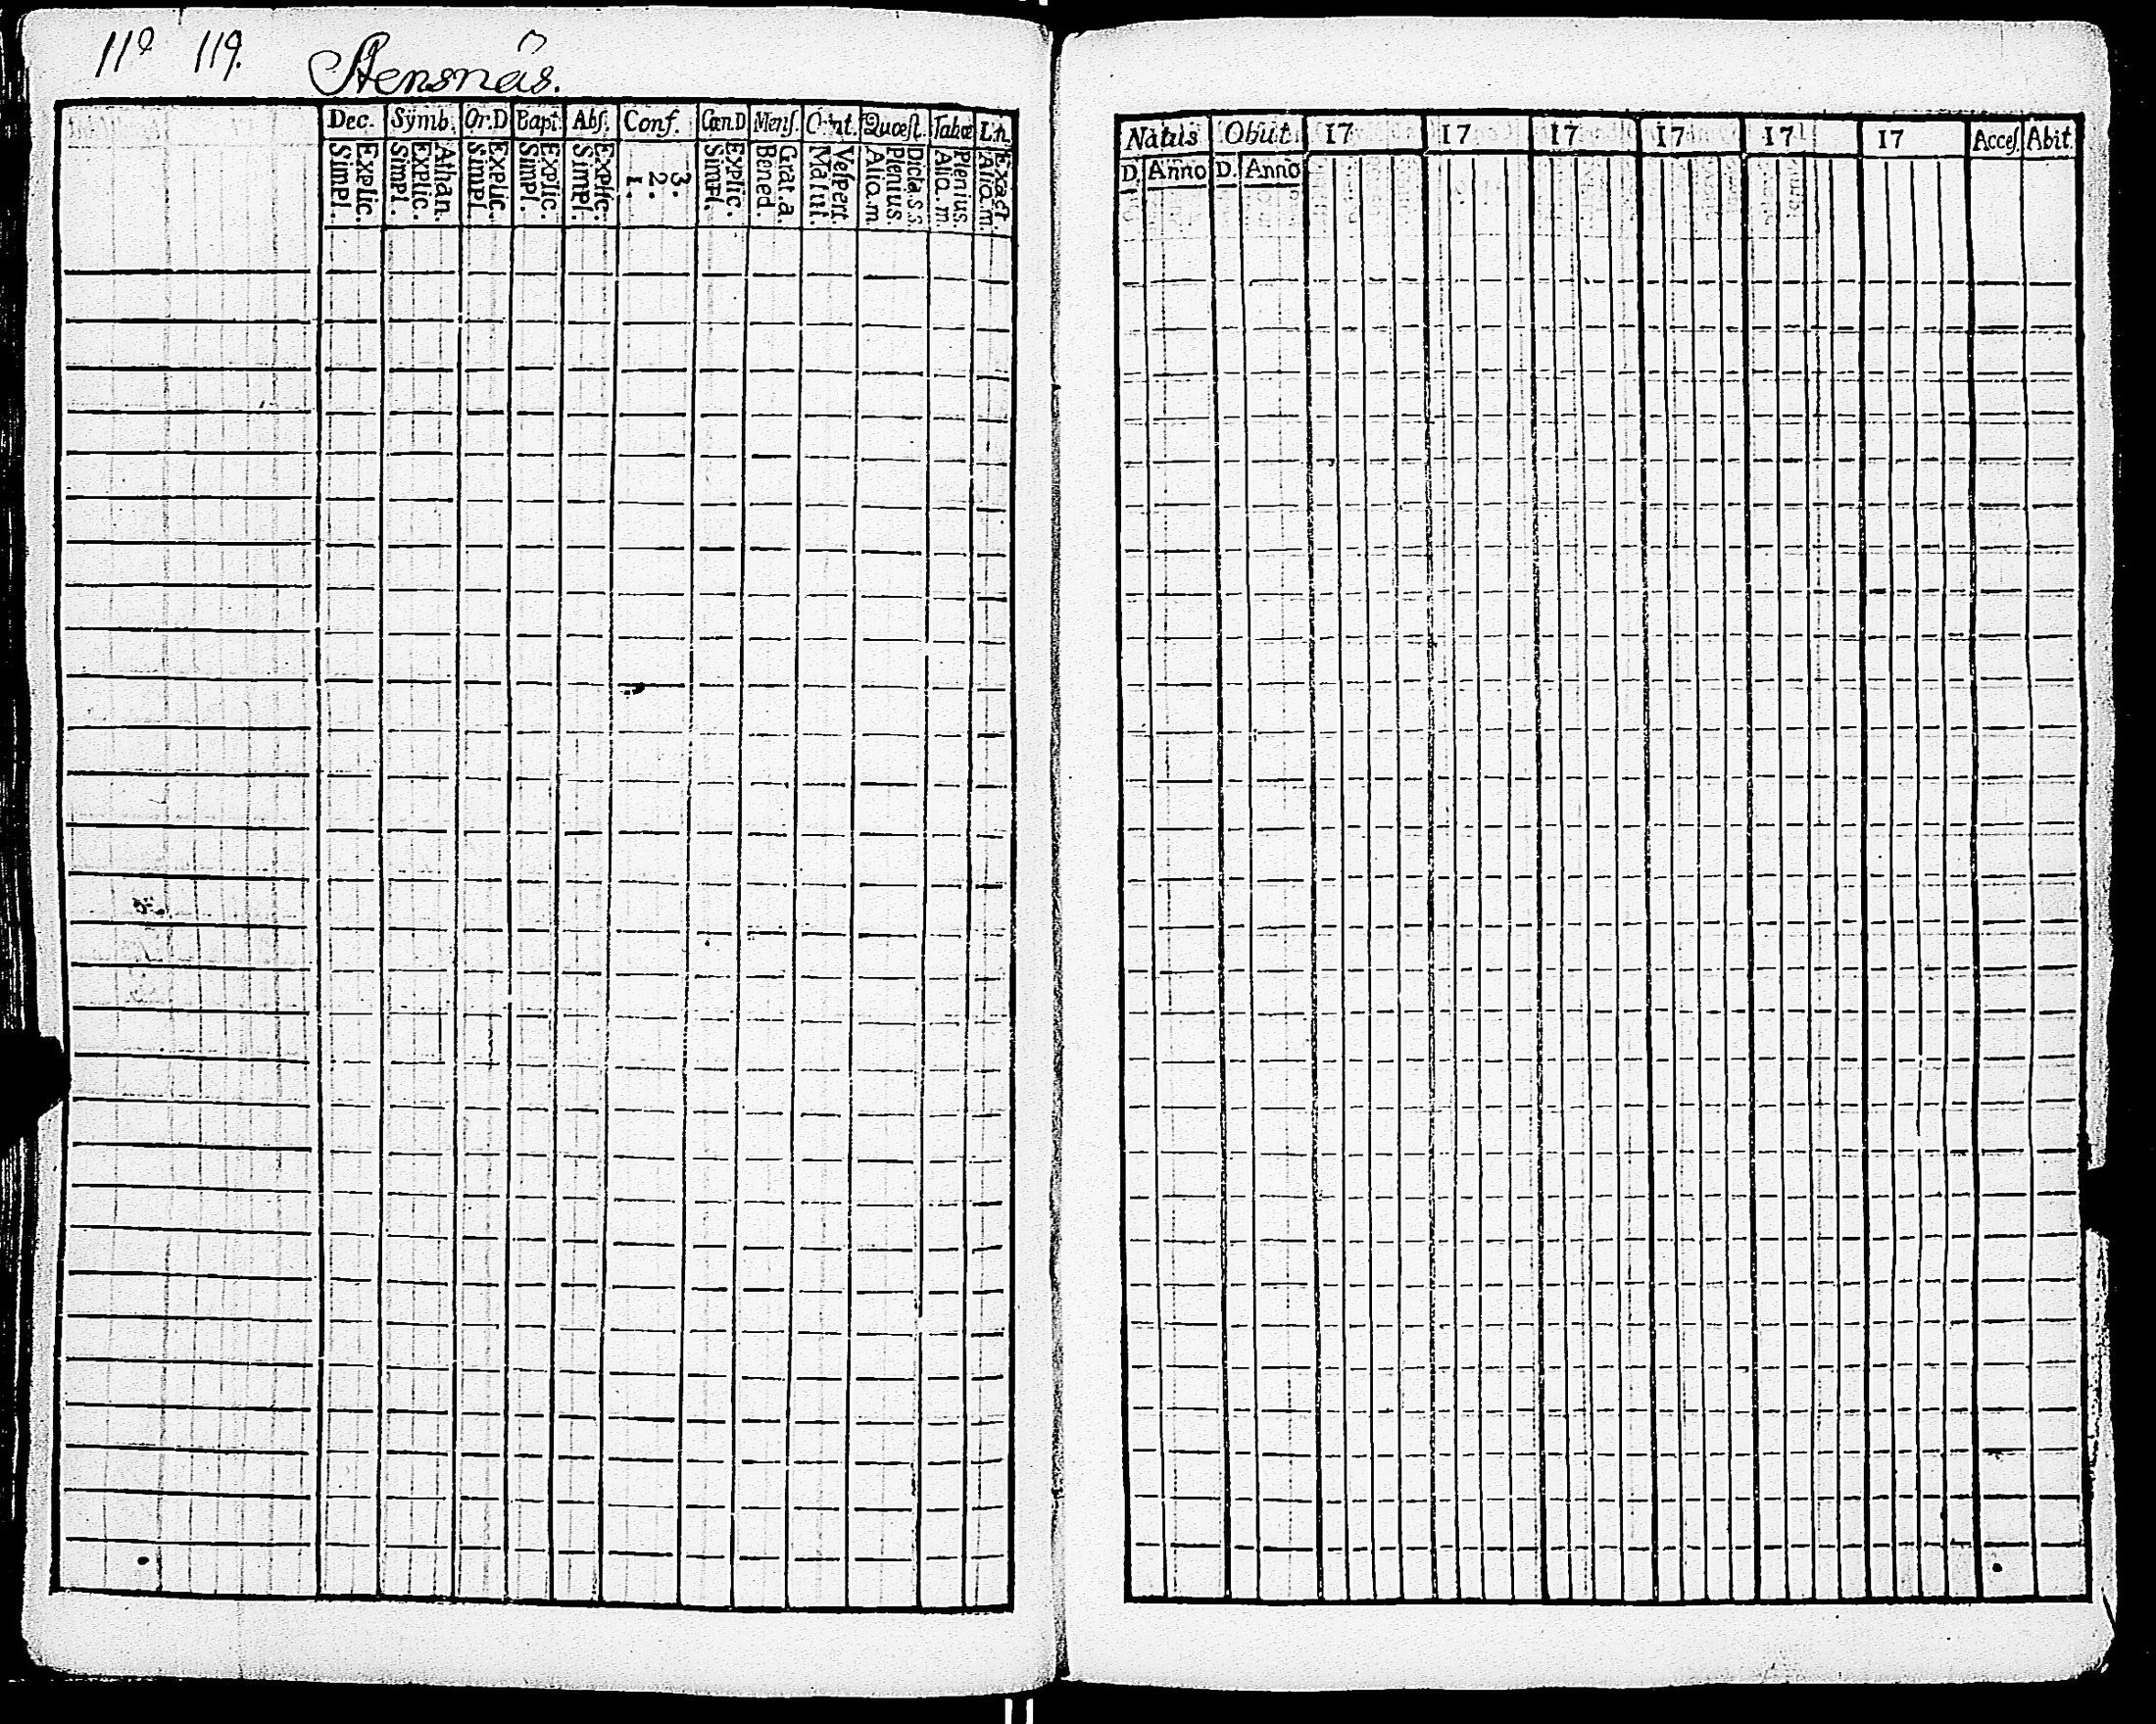 119.
Stensnäs.
Dec. Symb. Or.D Bapt. Abſ. Conf. Cœn.D Menſ. Quœſt. Tabœ
Simpl. Explic. Simpl. Explic. Athan. Simpl. Explic. Simpl. Explic. Simpl. Explic. 1. 2. 3. Simpl. Explic. Bened. Grat.a. Matut. Veſpert. Alia.m Plenius. Dicla.s.s Alia.m Plenius. Alia m. Exact
Natus Obiit. 17 17 17 17 17 17 Acceſ. Abit.
D. Anno D. Anno